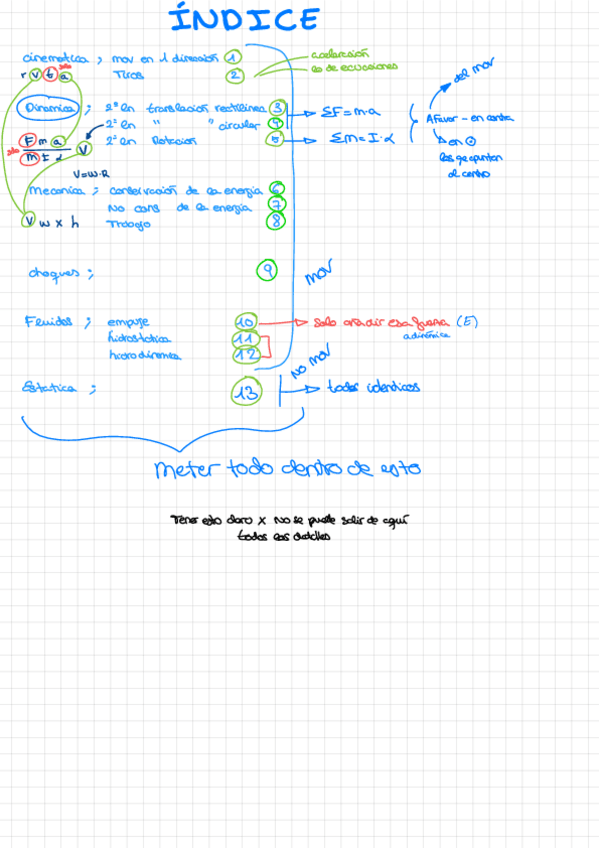 ÍNDICE
cinematica ; mov en 1 dirección 1
r v t a solo Tiros 2
aceleración
no de ecuaciones
Dinamica ; 2º ln translación rectilinea 3 → ΣF=m·a
2º ln " " circular 4
2º ln Rotacion 5 → ΣM=I·α
A favor - en contra
del mov
en
los que apuntan
al centro
F m a
solo m I α
V
V=w·R
mecanica ; conservación de la energia 6
No cons de la energia 7
V w x h Trabajo 8
choques ; 9
mov
Fluidos ; empuje 10 → solo añadir esa fuerza (E)
a dinámica
hidrostatica 11
hidrodinamica 12
No mov
Estatica ; 13 → todos identicos
meter todo dentro de esto
Tener esto claro x No se puede salir de aquí
todos los detalles